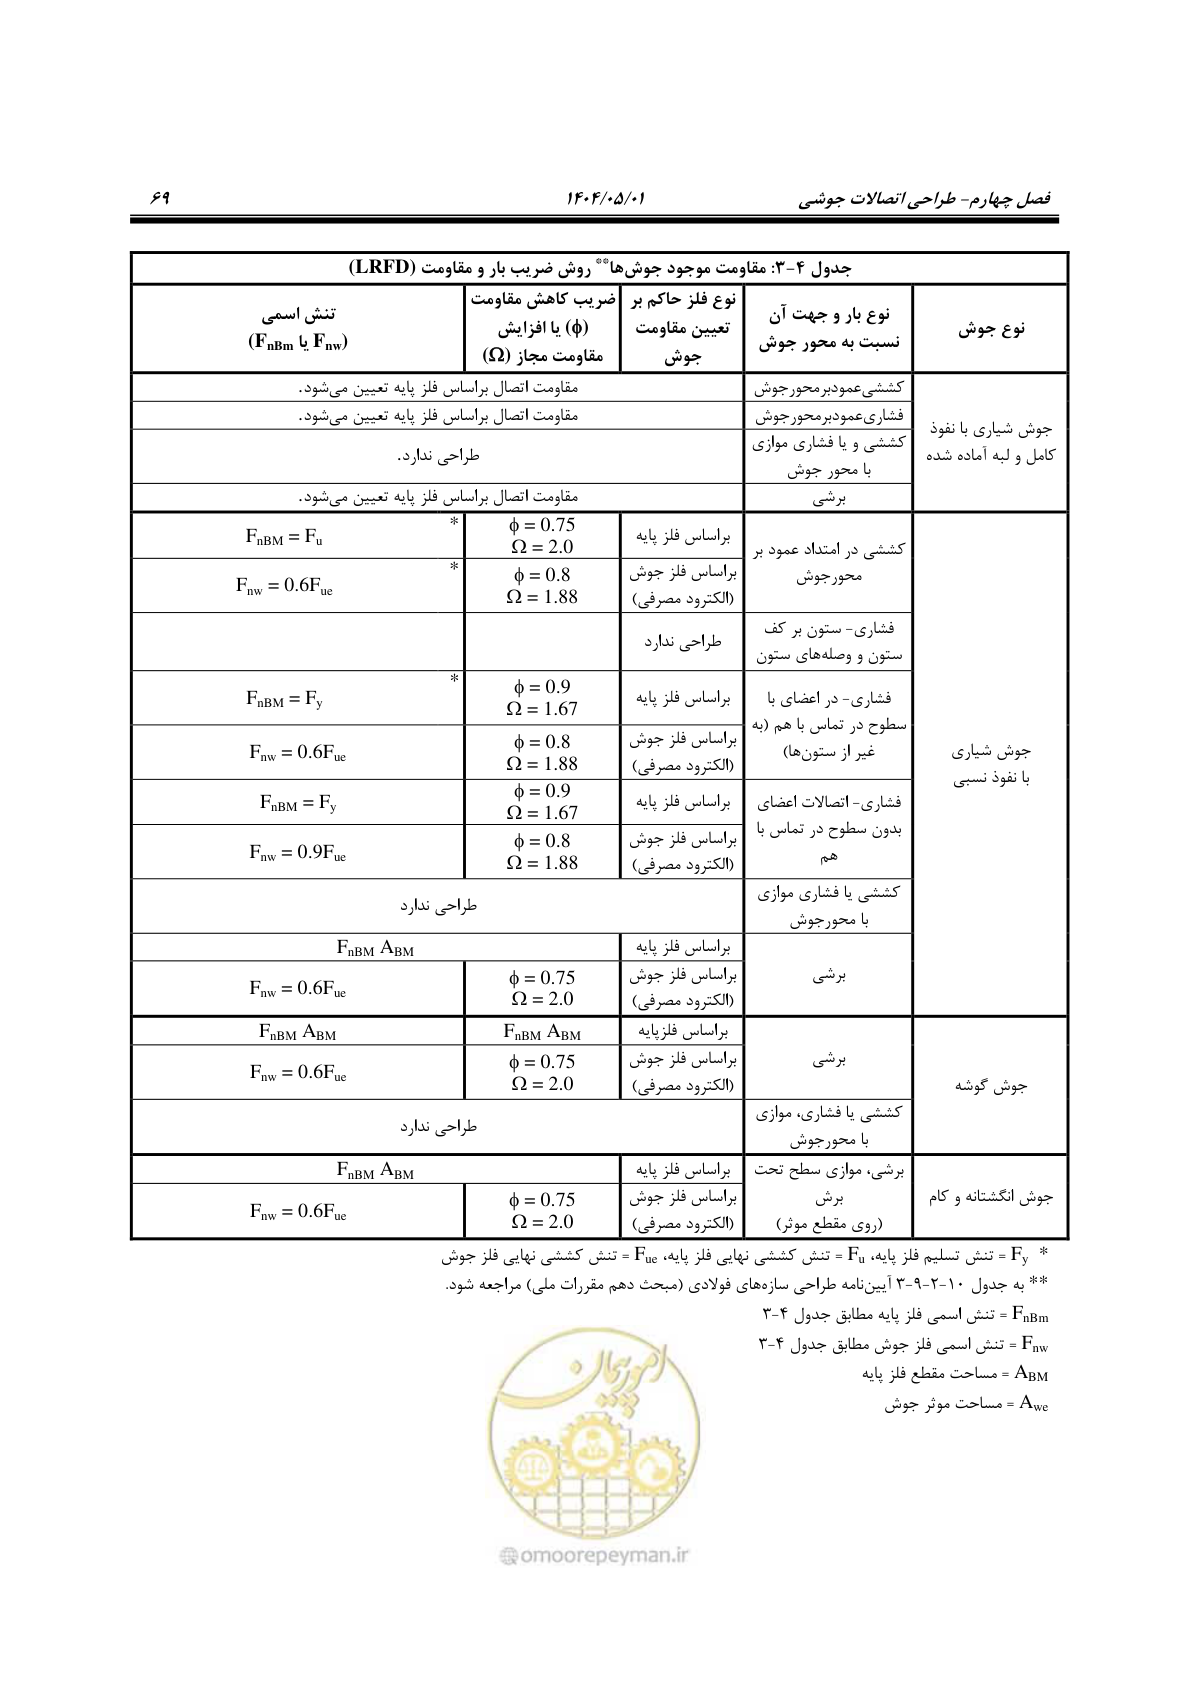 فصل چهارم- طراحی اتصالات جوشی ۱۴۰۴/۰۵/۰۱ ۶۹
جدول ۴-۳: مقاومت موجود جوش‌ها** روش ضریب بار و مقاومت (LRFD)
نوع جوش
نوع بار و جهت آن
نسبت به محور جوش
نوع فلز حاکم بر
تعیین مقاومت
جوش
ضریب کاهش مقاومت
(ϕ) یا افزایش
مقاومت مجاز (Ω)
تنش اسمی
(Fnw یا FnBm)
جوش شیاری با نفوذ
کامل و لبه آماده شده
کششی‌عمودبرمحورجوش
مقاومت اتصال براساس فلز پایه تعیین می‌شود.
فشاری‌عمودبرمحورجوش
مقاومت اتصال براساس فلز پایه تعیین می‌شود.
کششی و یا فشاری موازی
با محور جوش
طراحی ندارد.
برشی
مقاومت اتصال براساس فلز پایه تعیین می‌شود.
جوش شیاری
با نفوذ نسبی
کششی در امتداد عمود بر
محورجوش
براساس فلز پایه
ϕ = 0.75
Ω = 2.0
*
FnBM = Fu
براساس فلز جوش
(الکترود مصرفی)
ϕ = 0.8
Ω = 1.88
*
Fnw = 0.6Fue
فشاری- ستون بر کف
ستون و وصله‌های ستون
طراحی ندارد
فشاری- در اعضای با
سطوح در تماس با هم (به
غیر از ستون‌ها)
براساس فلز پایه
ϕ = 0.9
Ω = 1.67
*
FnBM = Fy
براساس فلز جوش
(الکترود مصرفی)
ϕ = 0.8
Ω = 1.88
Fnw = 0.6Fue
فشاری- اتصالات اعضای
بدون سطوح در تماس با
هم
براساس فلز پایه
ϕ = 0.9
Ω = 1.67
FnBM = Fy
براساس فلز جوش
(الکترود مصرفی)
ϕ = 0.8
Ω = 1.88
Fnw = 0.9Fue
کششی یا فشاری موازی
با محورجوش
طراحی ندارد
برشی
براساس فلز پایه
FnBM ABM
براساس فلز جوش
(الکترود مصرفی)
ϕ = 0.75
Ω = 2.0
Fnw = 0.6Fue
جوش گوشه
برشی
براساس فلزپایه
FnBM ABM
FnBM ABM
براساس فلز جوش
(الکترود مصرفی)
ϕ = 0.75
Ω = 2.0
Fnw = 0.6Fue
کششی یا فشاری، موازی
با محورجوش
طراحی ندارد
جوش انگشتانه و کام
برشی، موازی سطح تحت
برش
(روی مقطع موثر)
براساس فلز پایه
FnBM ABM
براساس فلز جوش
(الکترود مصرفی)
ϕ = 0.75
Ω = 2.0
Fnw = 0.6Fue
* Fy = تنش تسلیم فلز پایه، Fu = تنش کششی نهایی فلز پایه، Fue = تنش کششی نهایی فلز جوش
** به جدول ۱۰-۲-۹-۳ آیین‌نامه طراحی سازه‌های فولادی (مبحث دهم مقررات ملی) مراجعه شود.
FnBm = تنش اسمی فلز پایه مطابق جدول ۴-۳
Fnw = تنش اسمی فلز جوش مطابق جدول ۴-۳
ABM = مساحت مقطع فلز پایه
Awe = مساحت موثر جوش
امور پیمان
@omoorepeyman.ir